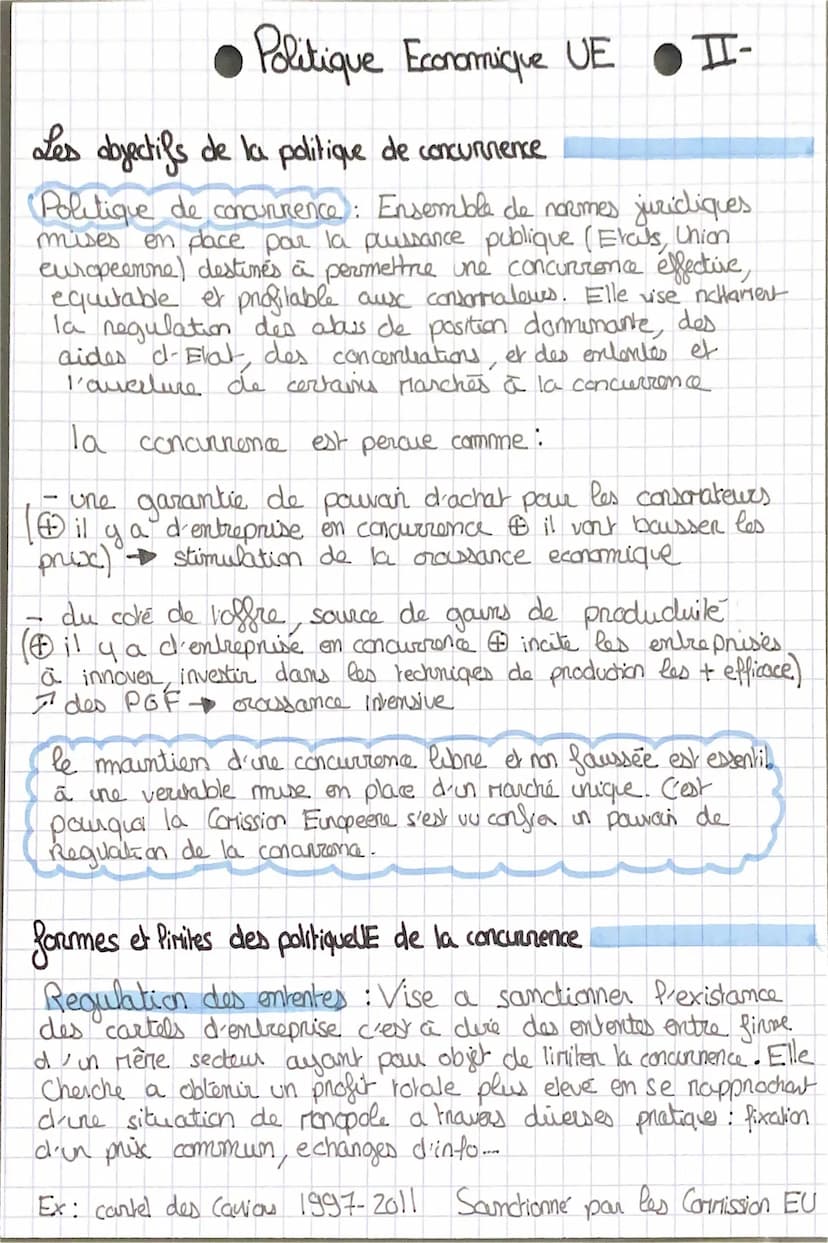 Politique Economique UE II-
Les objectifs de la politique de concurrence
Politique de concurrence : Ensemble de normes juridiques
mises en place par la puissance publique (Etats, Union
europeenne) destinés à permettre une concurrence effective,
equitable et profitable aux consomateurs. Elle vise nottament
la regulation des abus de position dominante, des
aides d'Etat, des concentrations, et des ententes et
l'ouverture de certains marchés à la concurrence
la concurrence est percue comme :
- une garantie de pouvoir d'achat pour les consomateurs
(⊕ il y a d'entreprise en concurrence ⊕ il vont baisser les
prix) → stimulation de la croissance economique
- du coté de l'offre, source de gains de productivité
(⊕ il y a d'entreprise en concurrence ⊕ incite les entreprises
à innover, investir dans les techniques de production les + efficace)
↗ des PGF → croissance intensive
le maintien d'une concurrence libre et non faussée est essentil
à une veritable mise en place d'un marché unique. C'est
pourquoi la Comission Europeene s'est vu confier un pouvoir de
Regulation de la concurrence.
formes et limites des politique UE de la concurrence
Regulation des ententes : Vise a sanctionner l'existance
des cartels d'entreprise c'est à dire des ententes entre firme
d'un même secteur ayant pour objet de limiter la concurrence. Elle
Cherche a obtenir un profit totale plus elevé en se rapprochant
d'une situation de monopole a travers diverses pratique : fixation
d'un prix commun, echanges d'info...
Ex : cartel des Camions 1997-2011 Sanctionné par les Commission EU